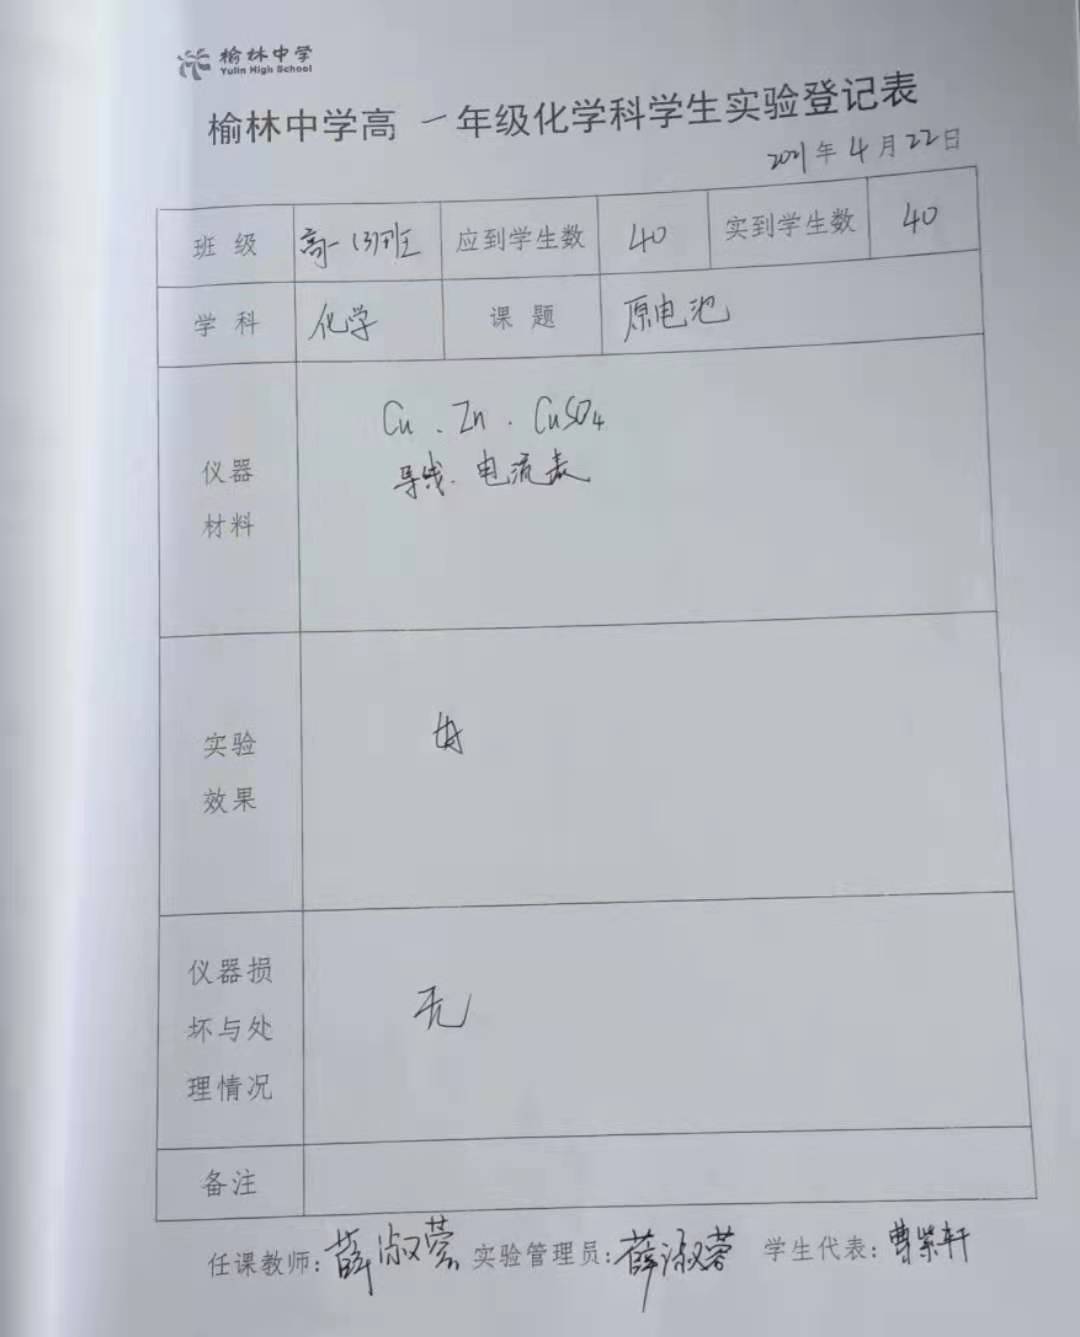 榆林中学
Yulin High School
榆林中学高 一年级化学科学生实验登记表
2021年4月22日
班 级 高一(3)班 应到学生数 40 实到学生数 40
学 科 化学 课 题 原电池
Cu . Zn . CuSO4
导线. 电流表
仪器
材料
实验
效果
仪器损
坏与处
理情况
无
备注
任课教师: 薛淑蓉 实验管理员: 薛淑蓉 学生代表: 曹紫轩